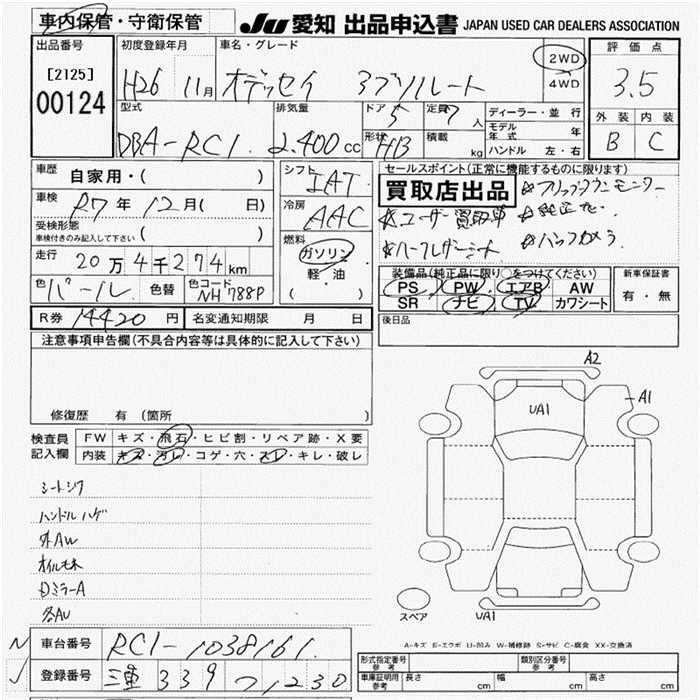 車内保管・守衛保管
JU 愛知 出品申込書 JAPAN USED CAR DEALERS ASSOCIATION
出品番号
[2125]
00124
初度登録年月
H26 11月
車名・グレード
オデッセイ アブソルート
2WD
4WD
評価点
3.5
外装 内装
B C
型式
DBA-RC1
排気量
2.400 cc
ドア
5
形状
HB
定員
7人
積載
kg
ディーラー・並行
モデル年式 年
ハンドル 左・右
車歴
自家用・( )
車検
R7年 12月( 日)
受検形態
車検付きのみ記入して下さい ( )
走行
20万4千274km
色
パール
色替
色コード
NH788P
シフト
IAT
冷房
AAC
燃料
ガソリン
軽・油
( )
セールスポイント(正常に機能するものに限ります)
買取店出品
☆フリップダウンモニター
☆ユーザー買取車
☆ハーフレザーシート
☆バックカメラ
装備品(純正品に限り○をつけてください)
PS PW エアB AW
SR ナビ TV カワシート
新車保証書
有・無
R券 14420 円
名変通知期限 月 日
後日品
注意事項申告欄(不具合内容等は具体的に記入して下さい)
修復歴 有 (箇所 )
検査員
記入欄
FW キズ・飛石・ヒビ割・リペア跡・X要
内装 キズ・汚レ・コゲ・穴・スレ・キレ・破レ
シートシワ
ハンドルハゲ
外AW
オイルモレ
DミラーA
各AU
A2
A1
UA1
UA1
スペア
A-キズ E-エクボ U-凹み W-補修跡 S-サビ C-腐食 XX-交換済
車台番号
RC1-1038161
登録番号
三重 339 つ 1230
型式指定番号
参考
類別区分番号
参考
車庫証明用
参考
長さ cm
幅 cm
高さ cm